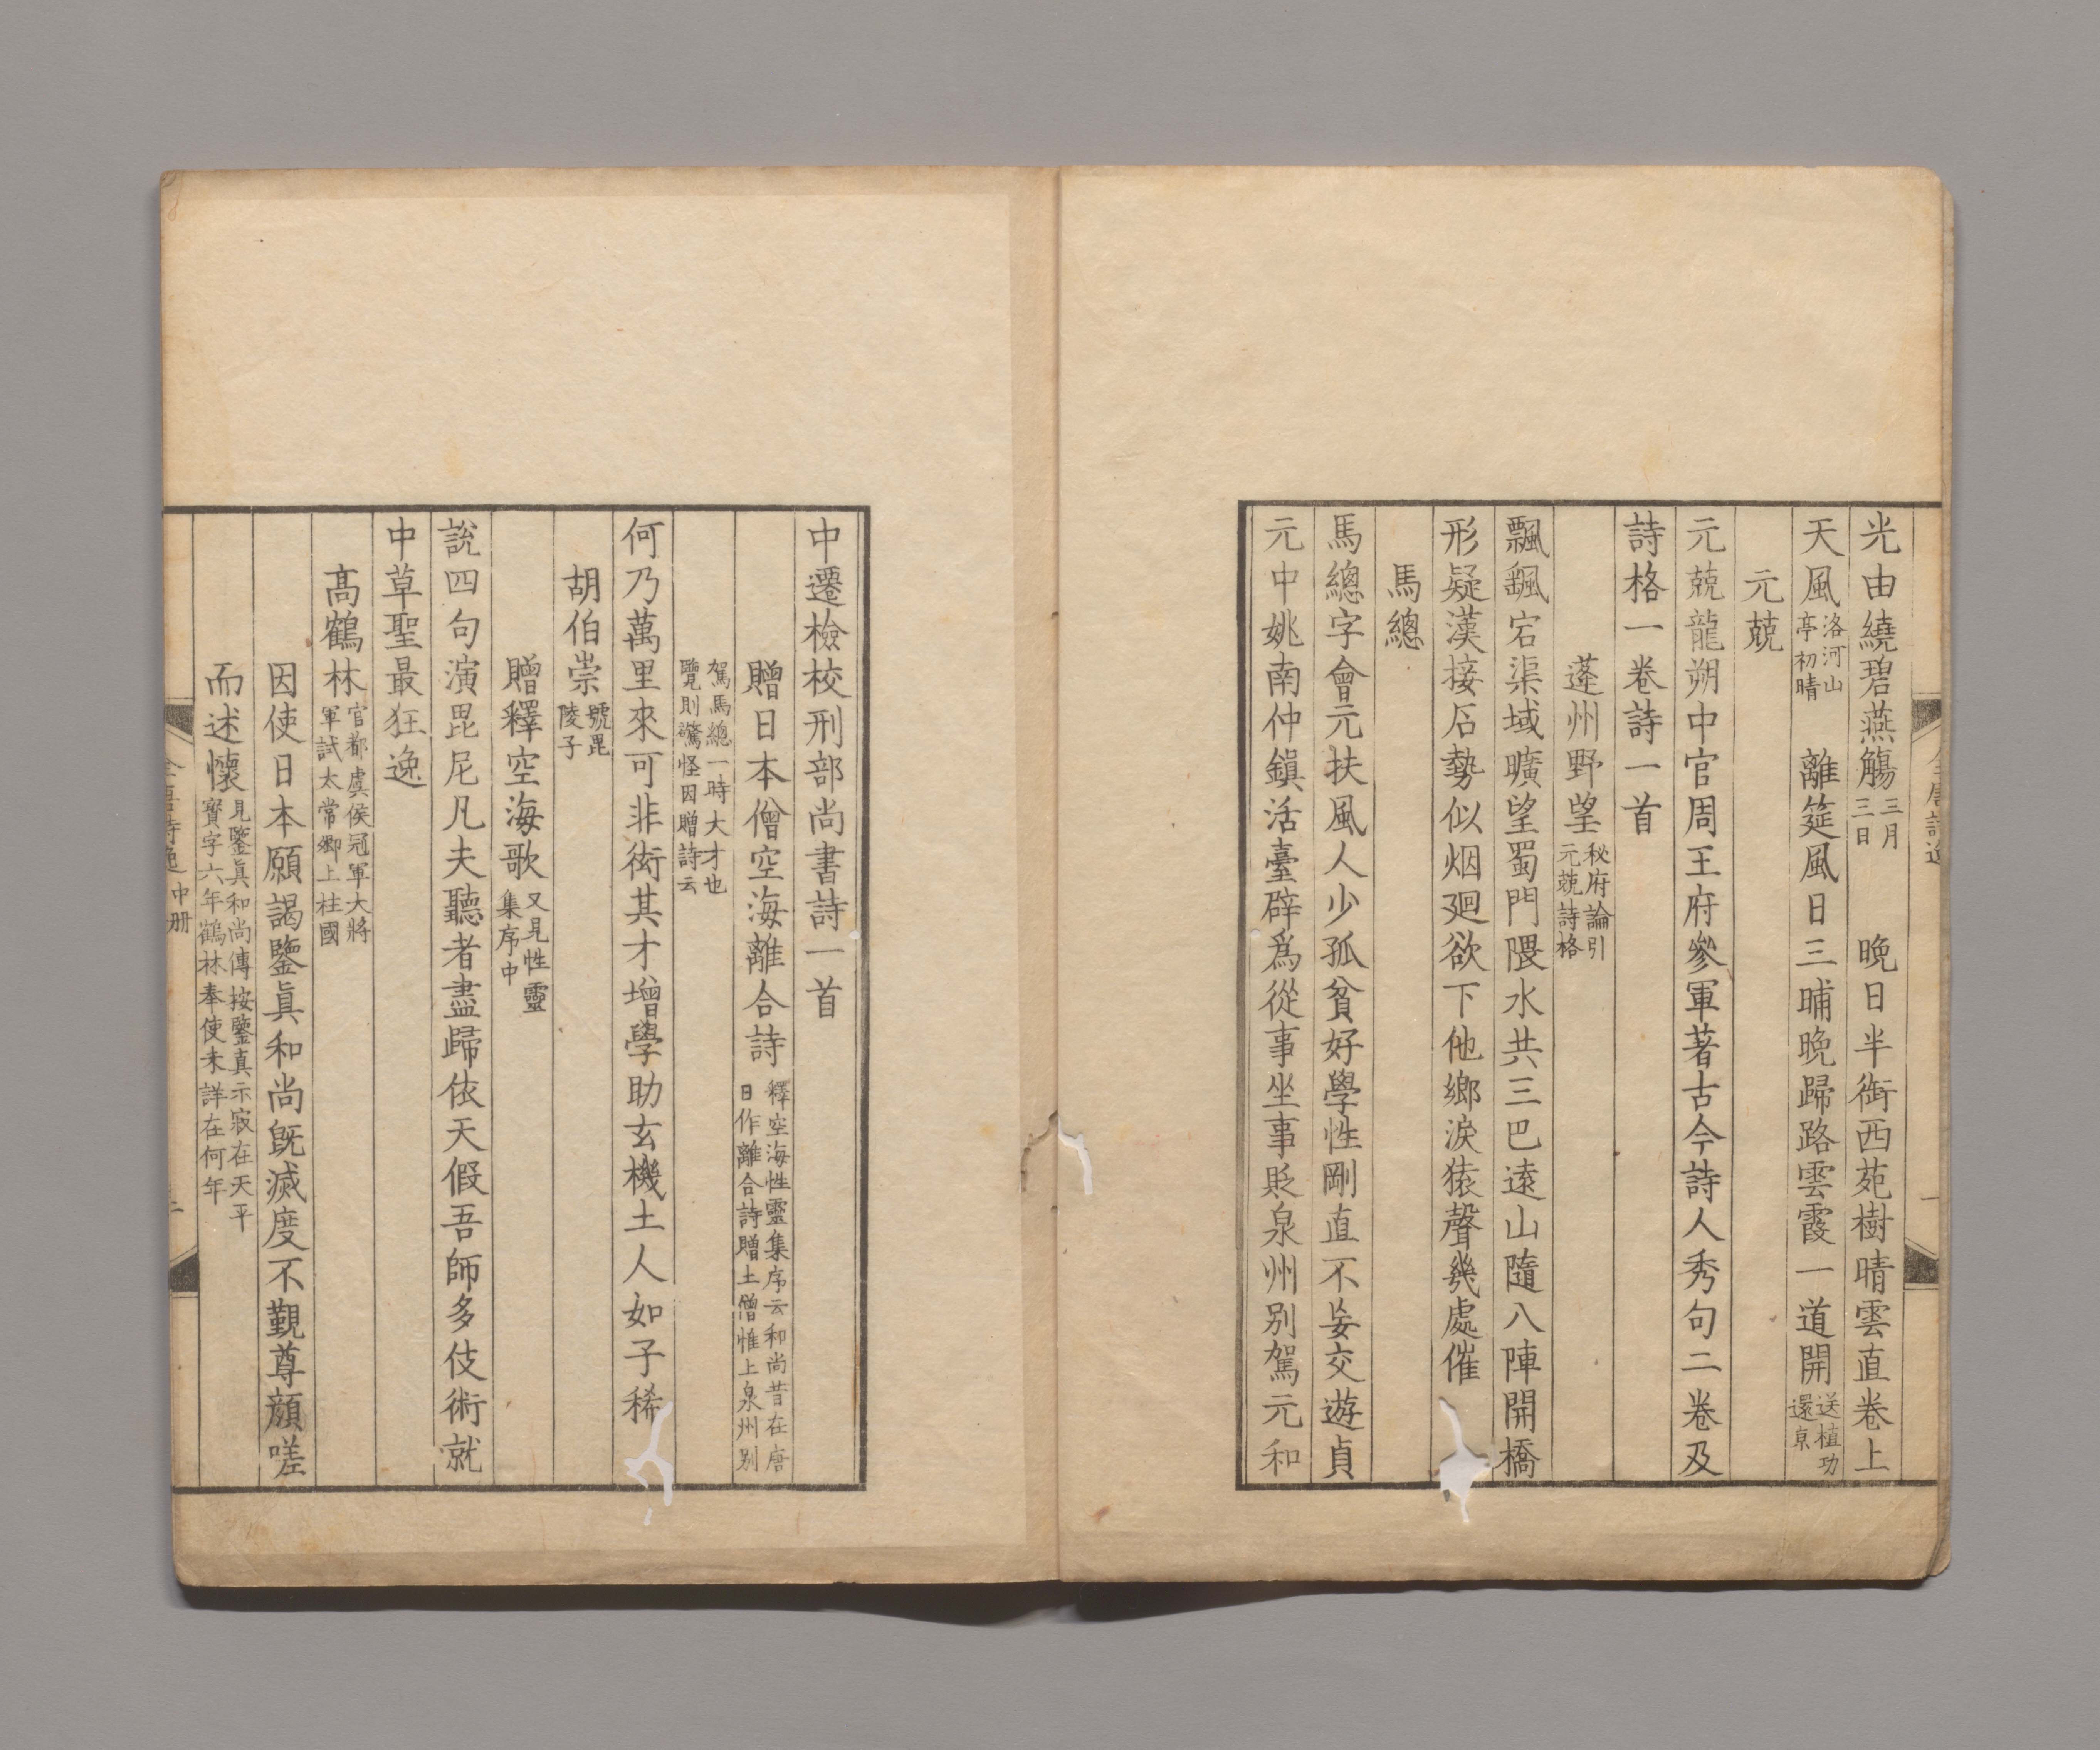 光由繞碧燕觴三月三日　晩日半銜西苑樹晴雲直卷上
天風洛河山亭初晴　離筵風日三晡晚歸路雲霞一道開送植功還京
元兢
元兢龍朔中官周王府參軍著古今詩人秀句二卷及
詩格一卷詩一首
蓬州野望秘府論引元兢詩格
飄飖宕渠域曠望蜀門隈水共三巴遠山隨八陣開橋
形疑漢接石勢似烟廻欲下他鄉淚猿聲幾處催
馬總
馬總字會元扶風人少孤貧好學性剛直不妄交遊貞
元中姚南仲鎭活臺辟爲從事坐事貶泉州別駕元和
中遷檢校刑部尚書詩一首
贈日本僧空海離合詩釋空海性靈集序云和尚昔在唐日作離合詩贈土僧惟上泉州別
駕馬總一時大才也覽則驚怪因贈詩云
何乃萬里來可非衒其才增學助玄機土人如子稀
胡伯崇號毘陵子
贈釋空海歌又見性靈集序中
說四句演毘尼凡夫聽者盡歸依天假吾師多伎術就
中草聖最狂逸
高鶴林官都虞侯冠軍大將軍試太常卿上柱國
因使日本願謁鑒眞和尚旣滅度不觀尊顔嗟
而述懷見鑒眞和尚傳按鑒真示寂在天平寶字六年鶴林奉使未詳在何年
全唐詩逸 中册